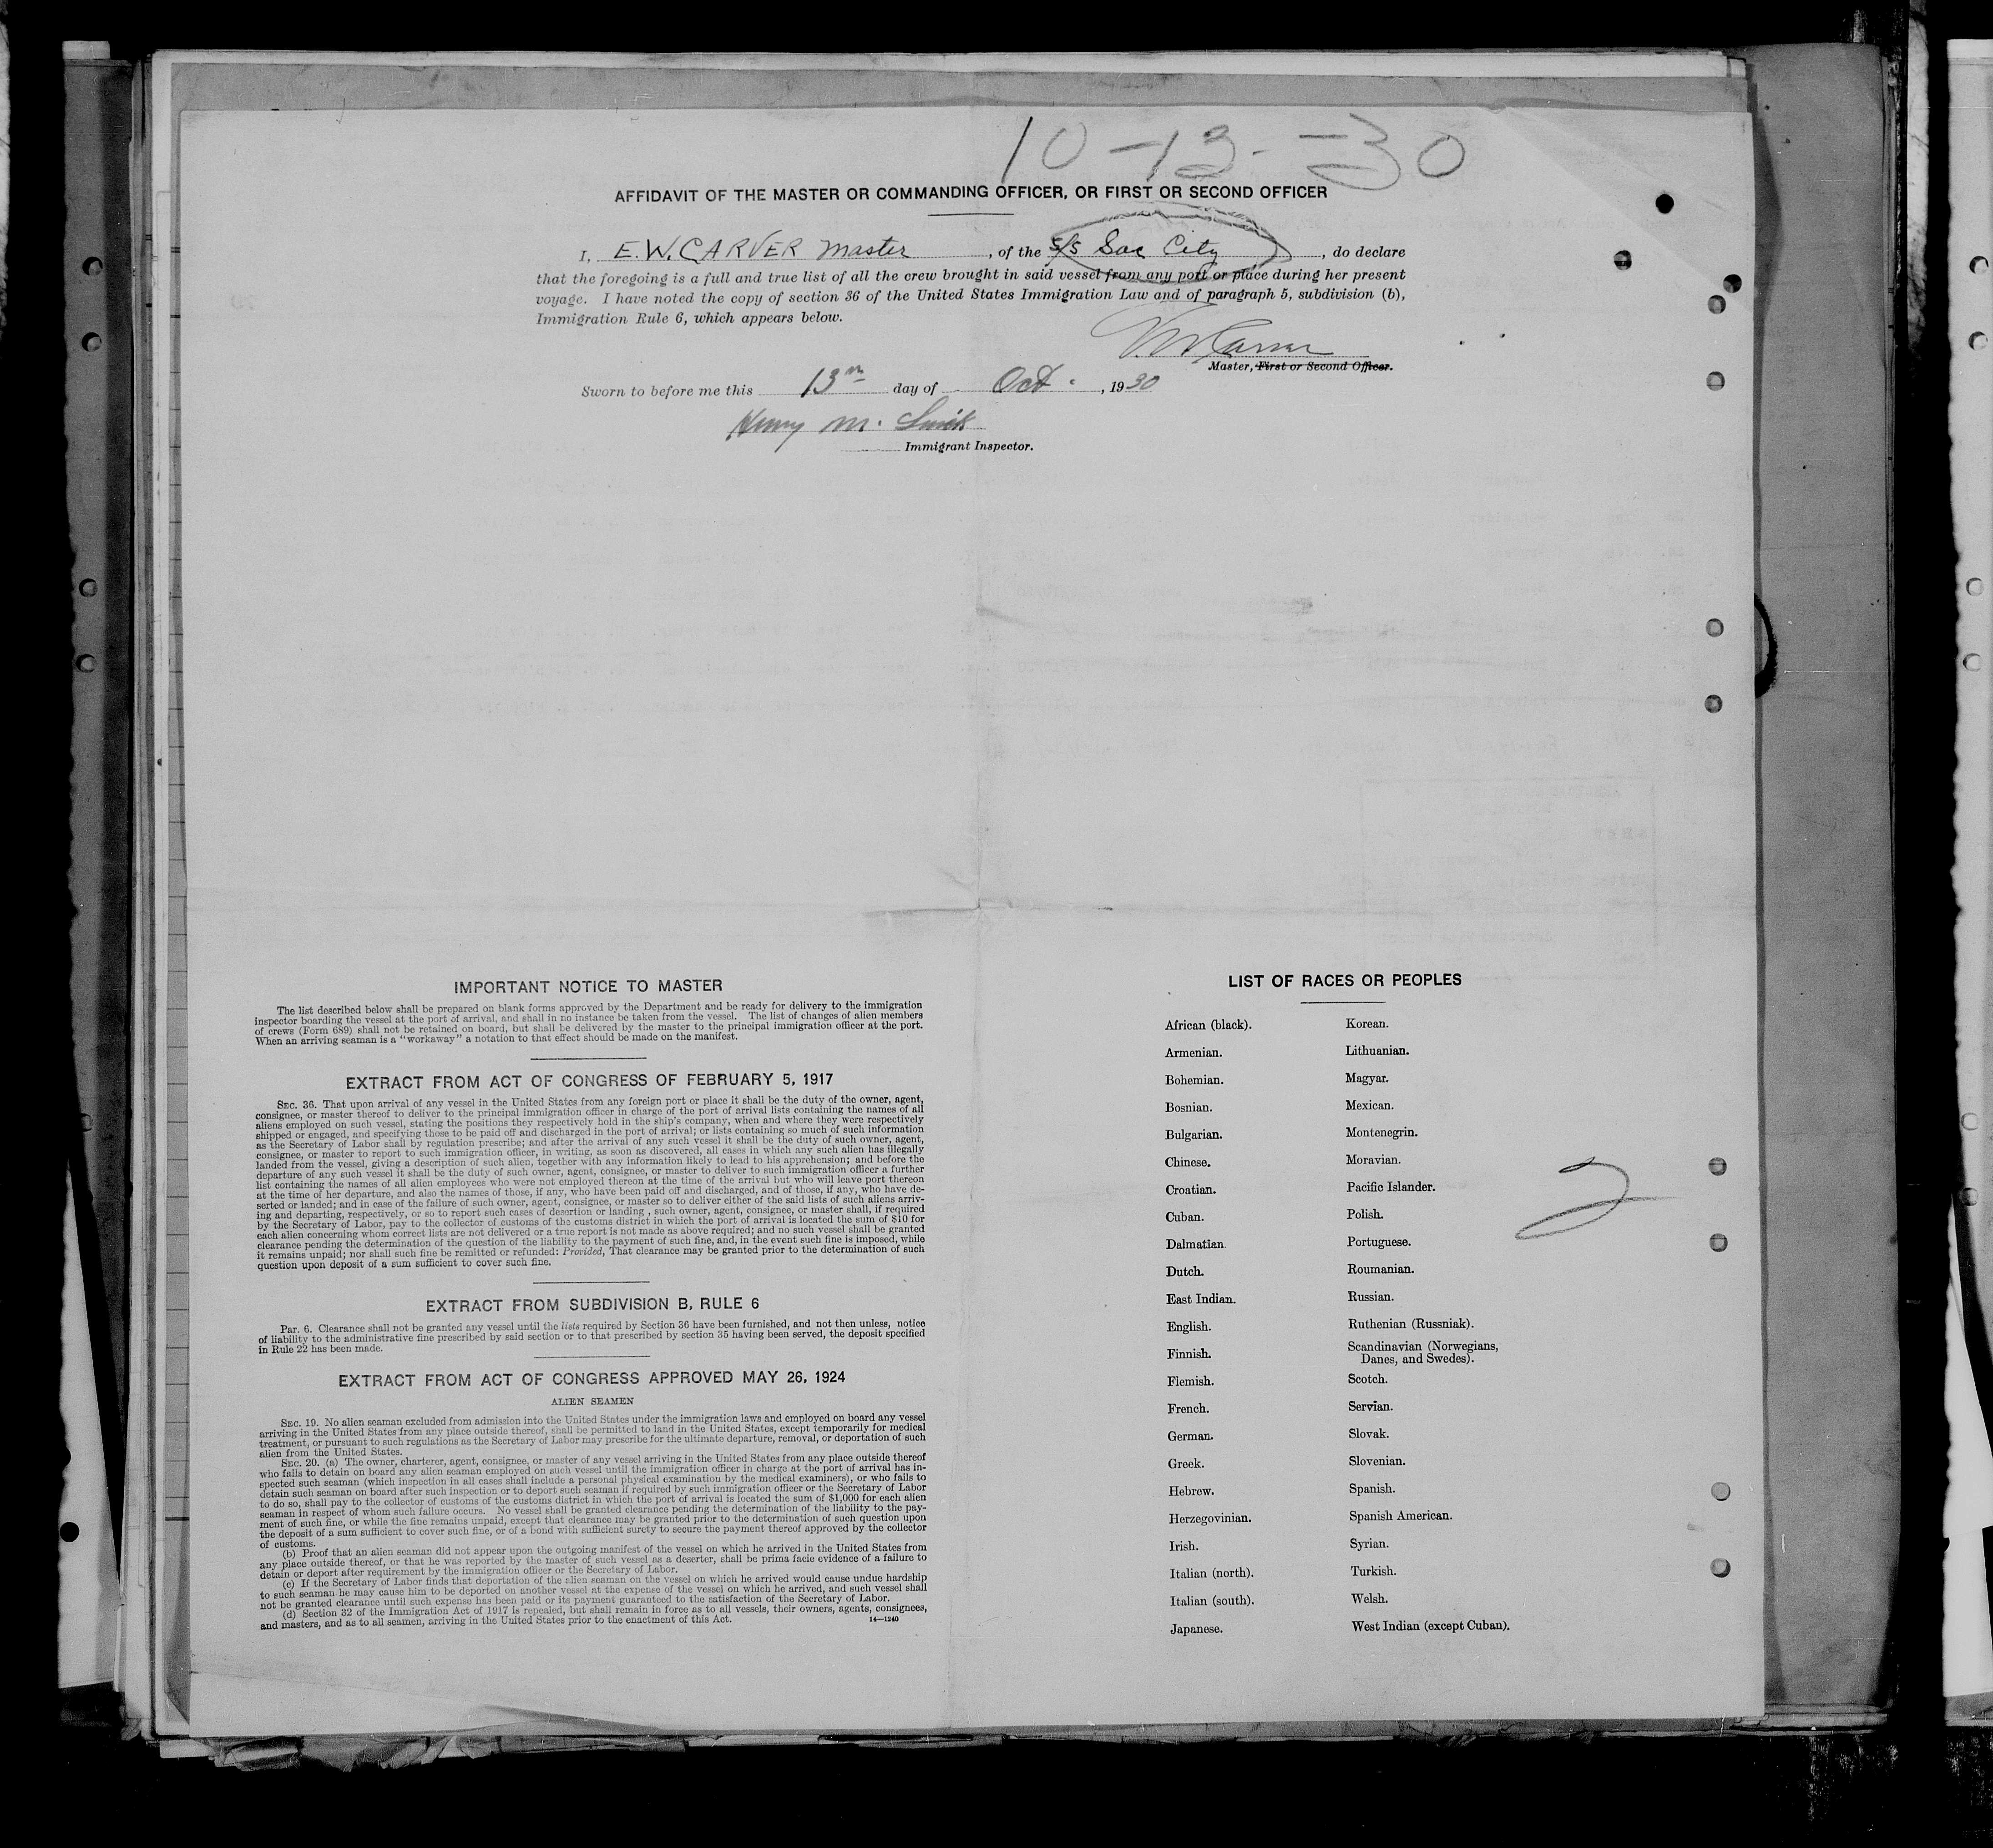 10-13-30
AFFIDAVIT OF THE MASTER OR COMMANDING OFFICER, OR FIRST OR SECOND OFFICER
I, E.W. CARVER Master, of the S/S Sac City, do declare
that the foregoing is a full and true list of all the crew brought in said vessel from any port or place during her present
voyage. I have noted the copy of section 36 of the United States Immigration Law and of paragraph 5, subdivision (b),
Immigration Rule 6, which appears below.
Master, First or Second Officer.
Sworn to before me this 13th day of Oct., 1930
Henry M. Smith
Immigrant Inspector.
IMPORTANT NOTICE TO MASTER
The list described below shall be prepared on blank forms approved by the Department and be ready for delivery to the immigration
inspector boarding the vessel at the port of arrival, and shall in no instance be taken from the vessel. The list of changes of alien members
of crews (Form 689) shall not be retained on board, but shall be delivered by the master to the principal immigration officer at the port.
When an arriving seaman is a "workaway" a notation to that effect should be made on the manifest.
EXTRACT FROM ACT OF CONGRESS OF FEBRUARY 5, 1917
SEC. 36. That upon arrival of any vessel in the United States from any foreign port or place it shall be the duty of the owner, agent,
consignee, or master thereof to deliver to the principal immigration officer in charge of the port of arrival lists containing the names of all
aliens employed on such vessel, stating the positions they respectively hold in the ship's company, when and where they were respectively
shipped or engaged, and specifying those to be paid off and discharged in the port of arrival; or lists containing so much of such information
as the Secretary of Labor shall by regulation prescribe; and after the arrival of any such vessel it shall be the duty of such owner, agent,
consignee, or master to report to such immigration officer, in writing, as soon as discovered, all cases in which any such alien has illegally
landed from the vessel, giving a description of such alien, together with any information likely to lead to his apprehension; and before the
departure of any such vessel it shall be the duty of such owner, agent, consignee, or master to deliver to such immigration officer a further
list containing the names of all alien employees who were not employed thereon at the time of the arrival but who will leave port thereon
at the time of her departure, and also the names of those, if any, who have been paid off and discharged, and of those, if any, who have de-
serted or landed; and in case of the failure of such owner, agent, consignee, or master so to deliver either of the said lists of such aliens arriv-
ing and departing, respectively, or so to report such cases of desertion or landing , such owner, agent, consignee, or master shall, if required
by the Secretary of Labor, pay to the collector of customs of the customs district in which the port of arrival is located the sum of $10 for
each alien concerning whom correct lists are not delivered or a true report is not made as above required; and no such vessel shall be granted
clearance pending the determination of the question of the liability to the payment of such fine, and, in the event such fine is imposed, while
it remains unpaid; nor shall such fine be remitted or refunded: Provided, That clearance may be granted prior to the determination of such
question upon deposit of a sum sufficient to cover such fine.
EXTRACT FROM SUBDIVISION B, RULE 6
PAR. 6. Clearance shall not be granted any vessel until the lists required by Section 36 have been furnished, and not then unless, notice
of liability to the administrative fine prescribed by said section or to that prescribed by section 35 having been served, the deposit specified
in Rule 22 has been made.
EXTRACT FROM ACT OF CONGRESS APPROVED MAY 26, 1924
ALIEN SEAMEN
SEC. 19. No alien seaman excluded from admission into the United States under the immigration laws and employed on board any vessel
arriving in the United States from any place outside thereof, shall be permitted to land in the United States, except temporarily for medical
treatment, or pursuant to such regulations as the Secretary of Labor may prescribe for the ultimate departure, removal, or deportation of such
alien from the United States.
SEC. 20. (a) The owner, charterer, agent, consignee, or master of any vessel arriving in the United States from any place outside thereof
who fails to detain on board any alien seaman employed on such vessel until the immigration officer in charge at the port of arrival has in-
spected such seaman (which inspection in all cases shall include a personal physical examination by the medical examiners), or who fails to
detain such seaman on board after such inspection or to deport such seaman if required by such immigration officer or the Secretary of Labor
to do so, shall pay to the collector of customs of the customs district in which the port of arrival is located the sum of $1,000 for each alien
seaman in respect of whom such failure occurs. No vessel shall be granted clearance pending the determination of the liability to the pay-
ment of such fine, or while the fine remains unpaid, except that clearance may be granted prior to the determination of such question upon
the deposit of a sum sufficient to cover such fine, or of a bond with sufficient surety to secure the payment thereof approved by the collector
of customs.
(b) Proof that an alien seaman did not appear upon the outgoing manifest of the vessel on which he arrived in the United States from
any place outside thereof, or that he was reported by the master of such vessel as a deserter, shall be prima facie evidence of a failure to
detain or deport after requirement by the immigration officer or the Secretary of Labor.
(c) If the Secretary of Labor finds that deportation of the alien seaman on the vessel on which he arrived would cause undue hardship
to such seaman he may cause him to be deported on another vessel at the expense of the vessel on which he arrived, and such vessel shall
not be granted clearance until such expense has been paid or its payment guaranteed to the satisfaction of the Secretary of Labor.
(d) Section 32 of the Immigration Act of 1917 is repealed, but shall remain in force as to all vessels, their owners, agents, consignees,
and masters, and as to all seamen, arriving in the United States prior to the enactment of this Act.
14—1240
LIST OF RACES OR PEOPLES
African (black).
Armenian.
Bohemian.
Bosnian.
Bulgarian.
Chinese.
Croatian.
Cuban.
Dalmatian.
Dutch.
East Indian.
English.
Finnish.
Flemish.
French.
German.
Greek.
Hebrew.
Herzegovinian.
Irish.
Italian (north).
Italian (south).
Japanese.
Korean.
Lithuanian.
Magyar.
Mexican.
Montenegrin.
Moravian.
Pacific Islander.
Polish.
Portuguese.
Roumanian.
Russian.
Ruthenian (Russniak).
Scandinavian (Norwegians,
Danes, and Swedes).
Scotch.
Servian.
Slovak.
Slovenian.
Spanish.
Spanish American.
Syrian.
Turkish.
Welsh.
West Indian (except Cuban).
2